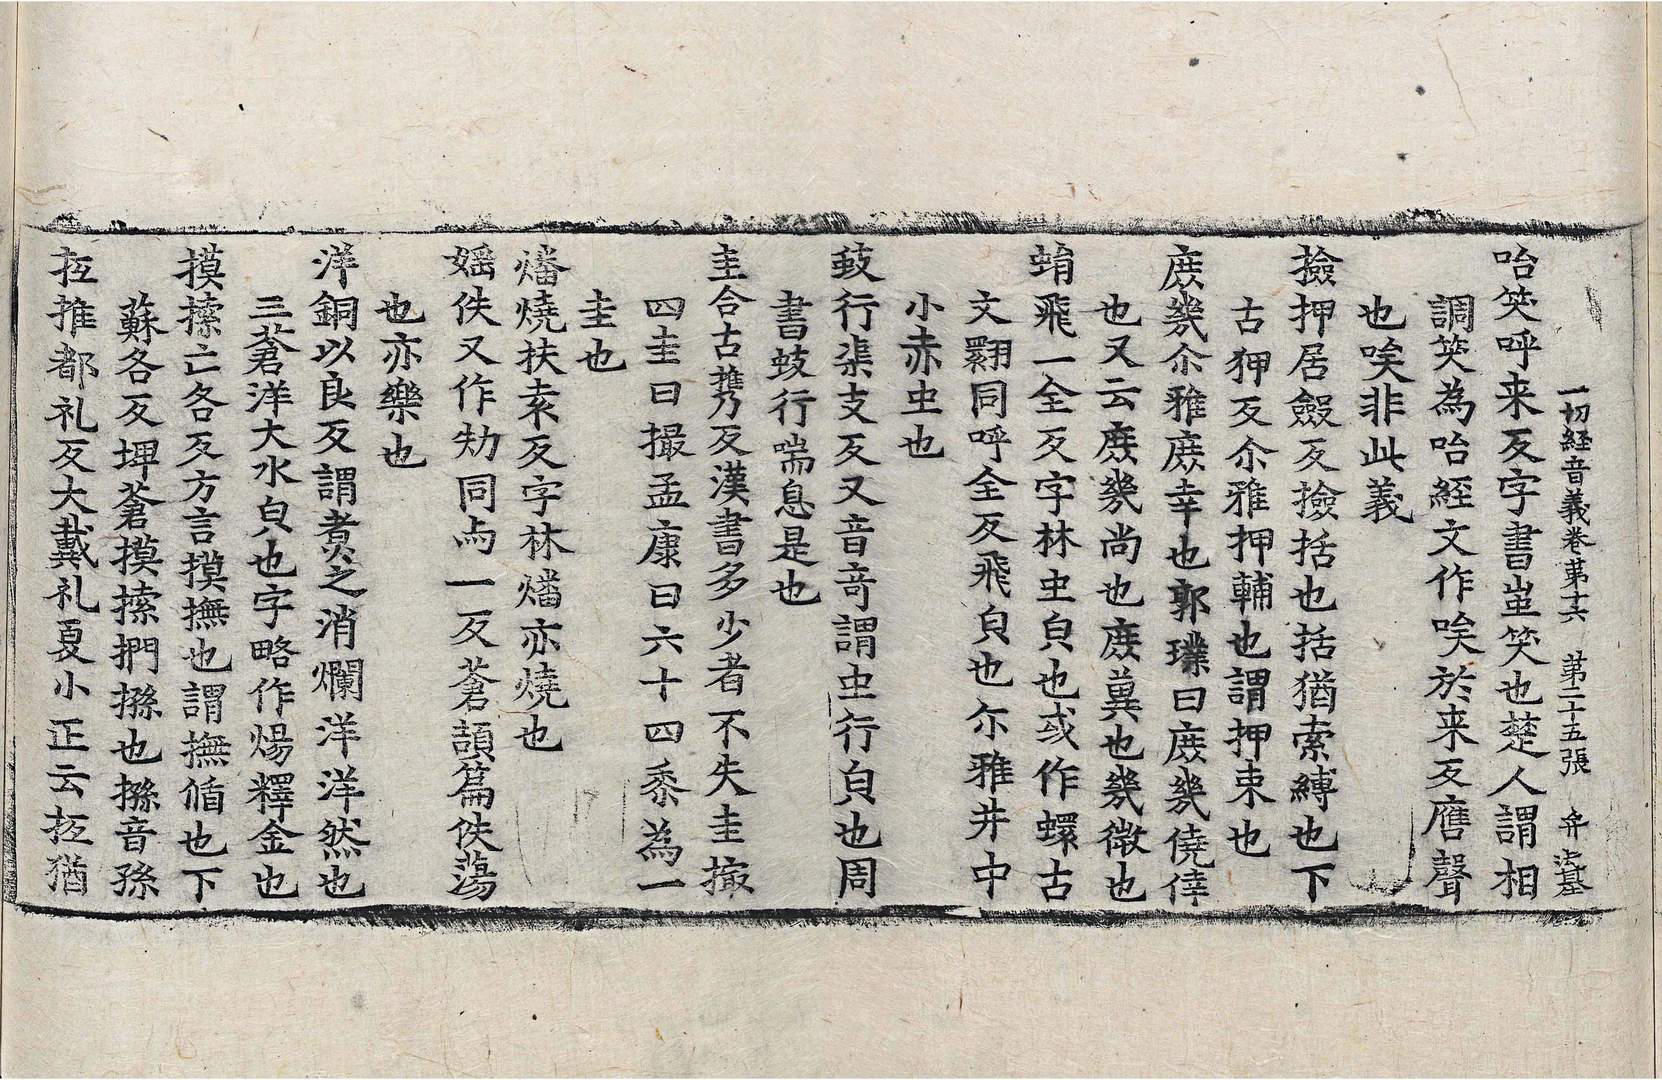 一切経音義卷苐十六　苐二十五張　弁
咍笑呼来反字書蚩笑也楚人謂相
調笑為咍経文作唉於来反譍聲
也唉非此義
撿押居儼反撿括也括猶索縛也下
古狎反尒雅押輔也謂押束也
庻幾尒雅庻幸也郭璞曰庻幾僥倖
也又云庻幾尚也庻兾也幾微也
蜎飛一全反字林虫皃也或作蠉古
文翾同呼全反飛皃也尒雅井中
小赤虫也
蚑行渠支反又音竒謂虫行皃也周
書蚑行喘息是也
圭合古攜反漢書多少者不失圭撮
四圭曰撮孟康曰六十四黍為一
圭也
燔燒扶袁反字林燔亦燒也
婬佚又作劮同与一反蒼頡篇佚蕩
也亦樂也
洋銅以良反謂煮之消爛洋洋然也
三蒼洋大水皃也字略作煬釋金也
摸㨞亡各反方言摸撫也謂撫循也下
蘇各反埤蒼摸㨞捫搎也搎音孫
抂推都礼反大戴礼夏小正云抂猶